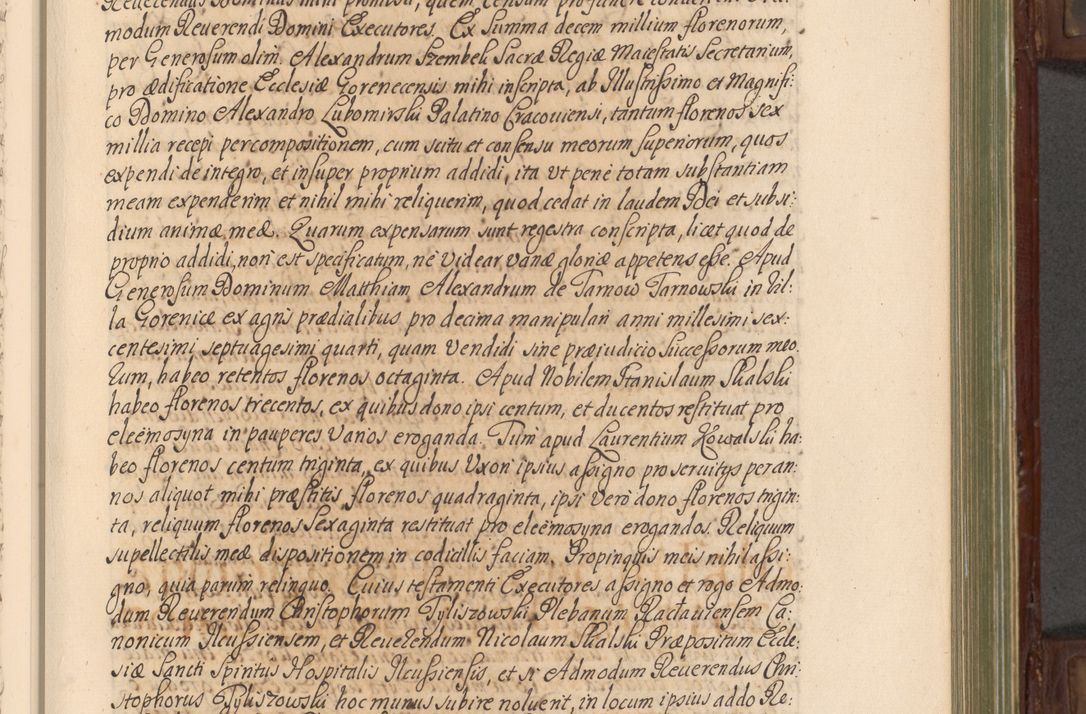 Reuerendus Dominus mihi promisit, quem censum pro
modum Reuerendi Domini Executores. Ex Summa decem millium florenorum,
per Generosum olim Alexandrum Szembek Sacræ Regiæ Maiestatis Secretarium,
pro ædificatione Ecclesiæ Gorenecensis mihi inscripta, ab Illustrissimo et Magnifi:
co Domino Alexandro Lubomirski Palatino Cracouiensi, tantum florenos sex
millia recepi per compositionem, cum scitu et consensu meorum superiorum, quos
expendi de integro, et insuper proprium addidi, ita vt penè totam substantiam
meam expenderim et nihil mihi reliquerim, quod cedat in laudem Dei et subsi:
dium animæ meæ. Quarum expensarum sunt regestra conscripta, licet quod de
proprio addidi, non est specificatum, ne videar vanæ gloriæ appetens esse. Apud
Generosum Dominum Matthiam Alexandrum de Tarnow Tarnowski in Vil:
la Gorenicæ ex agris prædialibus pro decima manipulari anni millesimi sex:
centesimi septuagesimi quarti, quam vendidi sine præiudicio Successorum meo
rum, habeo retentos florenos octaginta. Apud Nobilem Stanislaum Skalski
habeo florenos trecentos, ex quibus dono ipsi centum, et ducentos restituat pro
eleëmosyna in pauperes varios eroganda. Tum apud Laurentium Kowalski ha:
beo florenos centum triginta, ex quibus Vxori ipsius assigno pro seruitys per an:
nos aliquot mihi præstitis florenos quadraginta, ipsi verò dono florenos trigin:
ta, reliquum florenos Sexaginta restituat pro eleëmosyna erogandos. Reliquum
supellectilis meæ dispositionem in codicillis faciam. Propinquis meis nihil assi:
gno, quia parum relinquo. Cuius testamenti Executores assigno et rogo Admo:
dum Reuerendum Christophorum Pyliszowski Plebanum Raclauiensem Ca:
nonicum Ilcussiensem, et Reuerendum Nicolaum Skalski Præpositum Eccle:
siæ Sancti Spiritus Hospitalis Ilcussiensis, et si Admodum Reuerendus Chri:
stophorus Pyliszowski hoc munus subire noluerit, in locum ipsius addo Re: